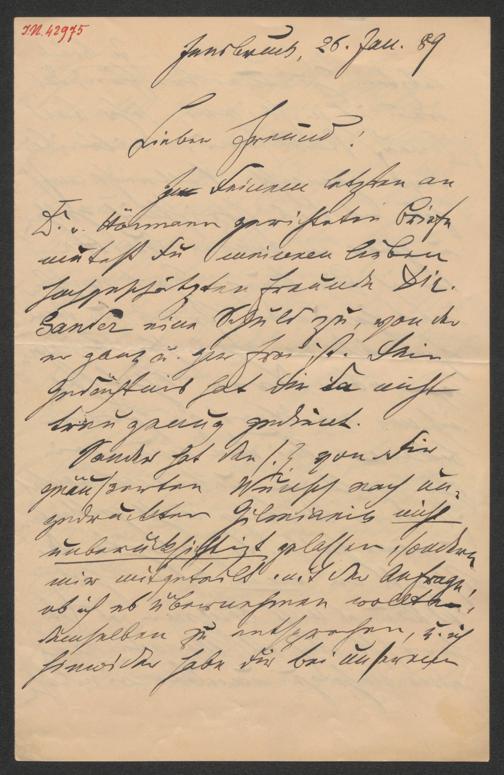 I.N. 42975
Innsbruck, 26. Jan. 89
Lieber Freund!
In Deinem letzten an
Dr. v. Hörmann gerichteten Briefe
mutest Du meinem lieben
hochgeschätzten Freunde Dir.
Sander eine Schuld zu, von der
er ganz u. gar frei ist. Dein
Gedächtnis hat Dir da nicht
treu genug gedient.
Sander hat den s. Z. von Dir
geäußerten Wunsch nach un-
gedruckten Gilmianis nicht
unberücksichtigt gelassen, sondern
mir mitgeteilt mit der Anfrage,
ob ich es übernehmen wollte,
demselben zu entsprechen, u. ich
hinwider habe Dir bei unserem